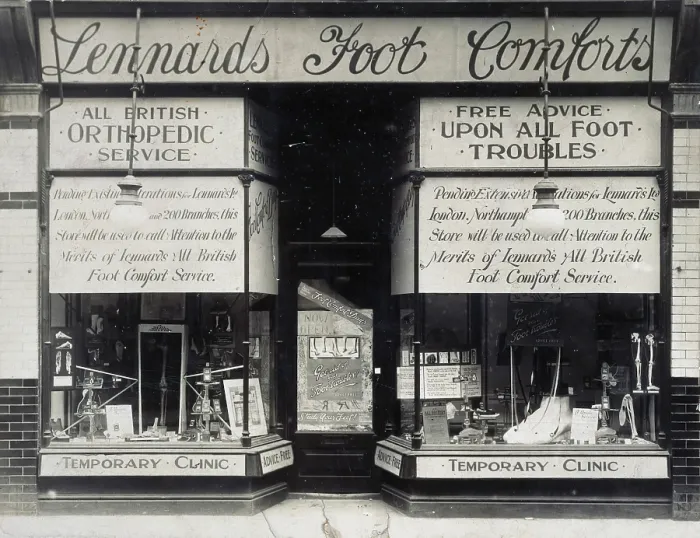 Lennards Foot Comforts
· ALL BRITISH ·
· ORTHOPEDIC ·
· SERVICE ·
· FREE ADVICE ·
UPON ALL FOOT
· TROUBLES ·
Pending Extensive rations for Lennards Ltd
London, North and 200 Branches, this
Store will be used to call Attention to the
Merits of Lennards All British
Foot Comfort Service.
Pending Extensive rations for Lennards Ltd
London, Northampt 200 Branches, this
Store will be used to call Attention to the
Merits of Lennards All British
Foot Comfort Service.
NOW
OPEN
· TEMPORARY · CLINIC ·
ADVICE · FREE
ADVICE · FREE
· TEMPORARY · CLINIC ·